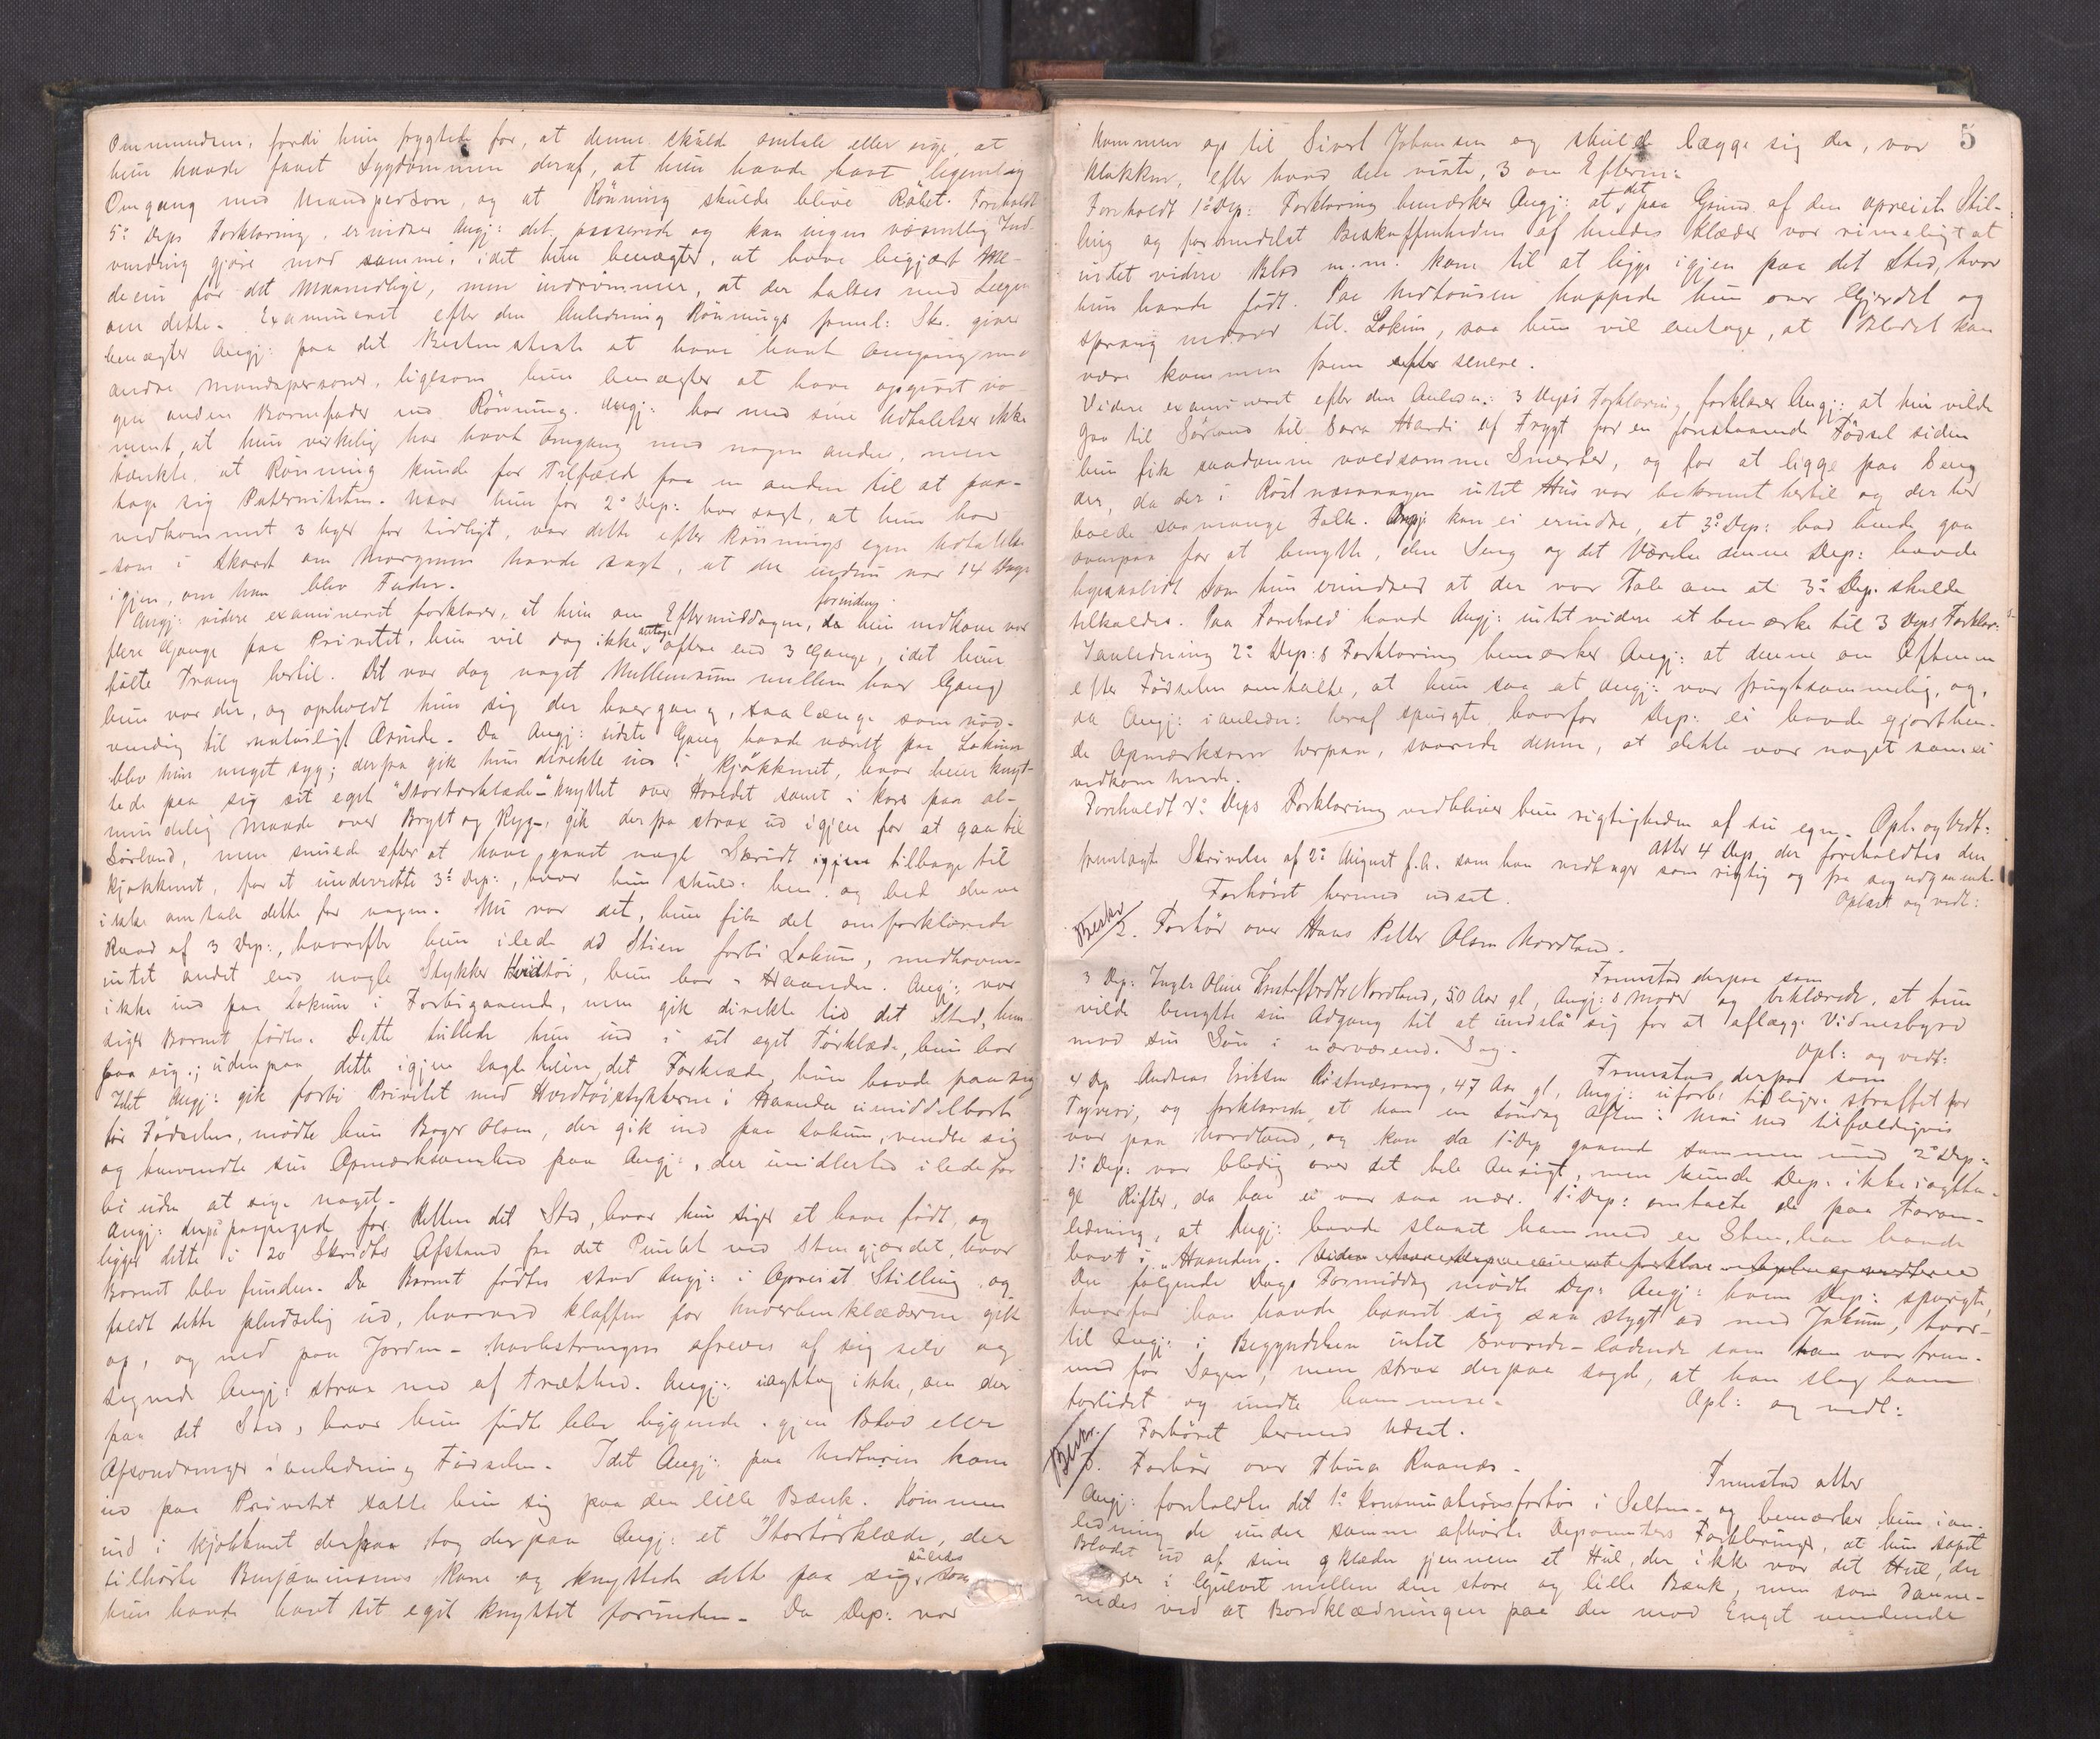 Ommundsen, fordi hun frygtede for, at denne skulde omtale eller sige, at
hun havde faaet Sygdommen deraf, at hun havde havt legemlig
Omgang med Mandsperson, og at Rönning skulde blive Rölet. Foreholdt
5te Deps Forklaring, erindrer Angj: det passerede og kan ingen væsentlig Ind-
vending gjöre mod samme, idet hun benægter, at have begjært Me-
decin for det Maanedlige, men indrömmer, at der taltes med Lægen
om dette. Examineret efter den Anledning Rönnings freml: Skr. giver
benægter Angj: paa det Bestemteste at have havt Omgang med
andre Mandspersoner, ligesom hun benægter at have opgivet no-
gen anden Barnefader end Rönning. Angj: har med sine Udtalelser ikke
ment, at hun virkelig har havt Omgang med nogen anden, men
tænkte at Rönning kunde for Tilfælde faa en anden til at paa-
tage sig Paterniteten. Naar hun for 2den Dep: har sagt, at hun har
nedkommet 3 Uger for tidligt, var dette efter Rönnings egen Udtalelse
som i Skaret om Morgenen havde sagt, at der endnu var 14 Dage
igjen, om han blev Fader.
Angj: videre examineret forklarer, at hun om Eftermiddagen, forinden hun nedkom var
flere Gange paa Privetet, hun vil dog ikke antage oftere end 3 Gange, idet hun
fölte Trang hertil. Det var dog noget Mellemrum mellem hver Gang
hun var der, og opholdt hun sig der hvergang, saalænge som nöd-
vendig til naturligt Ærinde. Da Angj: sidste Gang havde været paa Lokum
blev hun meget syg; derpaa gik hun direkte ind i Kjökkenet, hvor hun knyt-
tede paa sig sit eget "Stortörklæde" - knyttet over Hovedet samt i kors paa al-
mindelig Maade over Bryst og Ryg -, gik derpaa strax ud igjen for at gaa til
Sörland, men snuede efter at have gaaet nogle Skridt igjen tilbage til
Kjökkenet, for at underrette 3die Dep:, hvor hun skulde hen og bed denne
ikke omtale dette for nogen. Nu var det, hun fik det omforklarede
Raad af 3 Dep:, hvorefter hun ilede ad Stien forbi Lokum, medhaven-
intet andet end nogle Stykker Hvidtöi, hun bar i Haanden. Angj: var
ikke ind paa Lokum i Forbigaaende, men gik direkte til det Sted, hun
siger Barnet födtes. Dette tullede hun ind i sit eget Törklæde, hun bar
paa sig; udenpaa dette igjen lagde hun det Forklæde hun havde paa sig
Idet Angj: gik forbi Privetet med Hvidtöistykkerne i Haanden umiddelbart
för Födselen, mödte hun Roger Olsen, der gik ind paa Lokum, vendte sig
og henvendte sin Opmærksomhed paa Angj:, der imidlertid ilede for
bi uden at sige noget.
Angj: derpaa paapegede for Retten det Sted, hvor hun siger at have födt, og
ligger dette i 20 Skridts Afstand fra det Punkt ved Stengjærdet, hvor
Barnet blev funden. Da Barnet födtes stod Angj: i Opreist Stilling og
faldt dette pludselig ud, hvorved klaffen for Underbenklæderne gik
op, og ned paa Jorden. Navlestrengen afreves af sig selv og
segnede Angj: strax ned af træthed. Angj: iagttog ikke, om der
paa det Sted, hvor hun födte blev liggende igjen Blod eller
Afsondringer i anledning Födselen. Idet Angj: paa Nedturen kom
ind paa Privetet satte hun sig paa den lille Bænk. Kommen
ind i Kjökkenet tog derpaa Angj: et "Stortörklæde", der
tilhörte Benjaminsens Kone og knyttede dette paa sig, saaledes som
hun havde havt sit eget knyttet forinden. Da Dep: var
5
kommen op til Sivert Johansen og skulde lægge sig der, var
Klokken, efter hvad den viste, 3 om Efterm:
Foreholdt 1ste Dep: Forklaring bemærker Angj: at det paa Grund af den opreiste Stil-
ling og formedelst Beskaffenheden af hendes klæder var rimeligt at
intet videre Blod m.m. kom til at ligge igjen paa det Sted, hvor
hun havde födt. Paa Nedtouren hoppede hun over Gjærdet og
sprang nedover til Lokum, saa hun vil antage, at Blodet kan
være kommen frem senere.
Videre examineret efter den Anledn: 3 Dep's Forklaring, forklarer Angj: at hun vilde
gaa til Sörland til Sara Hardi af Frygt for en forestaaende Födsel siden
hun fik saadanne voldsomme Smerter, og for at ligge paa Seng
der, da der i Röstnæsvaagen intet Hus var bekvemt hertil og der her
boede saa mange Folk. Angj: kan ei erindre, at 3die Dep: bad hende gaa
ovenpaa for at benytte, den Seng og det Værelse denne Dep: havde
Som hun erindrer at der var Tale om at 3die Dep. skulde
tilkaldes. Paa Forehold havde Angj: intet videre at bemærke til 3 Deps Forklar:
I anledning 2den Dep:s Forklaring bemærker Angj: at denne om Aftenen
efter Födselen omtalte, at hun saa at Angj: var frugtsommelig, og,
da Angj: i anledn: heraf spurgte hvorfor Dep: ei havde gjort hen-
de Opmærksom herpaa, svarede denne, at dette var noget som ei
vedkom hende.
Foreholdt 4de Deps Forklaring vedbliver hun rigtigheden af sin egen. Opl. og Vedt:
Atter 4 Dep, der foreholdtes den
fremlagte Skrivelse af 2den August f.A. som han vedtager som rigtig og fra sig udgaaende.
Oplæst og vedt:
Forhöret hermed udsat.
Beskr
2. Forhör over Hans Petter Olsen Nordland.
Fremstod derpaa som
3 Dep: Inger Oline Kristoffersdtr Nordland, 50 Aar gl, Angj:s moder og erklærede, at hun
vilde benytte sin Adgang til at undslå sig for at aflægge Vidnesbyrd
mod sin Sön i nærværende Sag.
Opl: og vedt:
Fremstod derpaa som
4 Dep Andreas Eriksen Röstnæsvaag, 47 Aar gl, Angj: uforb, tidligere straffet for
Tyveri, og forklarede, at han en Söndag Aften i Mai md tilfældigvis
var paa Nordland, og kom da 1ste Dep gaaende sammen med 2den Dep:
1ste Dep: var blodig over det hele Ansigt, men kunde Dep: ikke iagtta-
ge Rifter, da han ei var saa nær. 1ste Dep: omtalte da paa Foran-
ledning, at Angj: havde slaaet ham med en Sten, han havde
havt i Haanden.
Den fölgende Dags Formiddag mödte Dep: Angj: hvem Dep: spurgte,
hvorfor han havde baaret sig saa stygt ad med Jakum, hvor-
til Angj: i Begyndelsen intet svarede - ladende som han var frem-
med for Sagen, men strax derpaa sagde, at han slog ham
forlidet og undte ham mere.
Opl: og vedt:
Forhöret hermed Udsat.
Beskr.
3. Forhör over Thina Raanæs.
Fremstod atter
Angj: foreholdtes det 1ste Kontinuationsforhör i Salten - og bemærker hun i an-
ledning de under samme afhörte Deponenters Forklaringer, at hun
Blodet ud af sine klæder gjennem et Hul, der ikke var det Hul, der
i Gulvet mellem den store og lille Bænk, men som danne-
nedes ved at Bordklædningen paa den mod Enget vendende